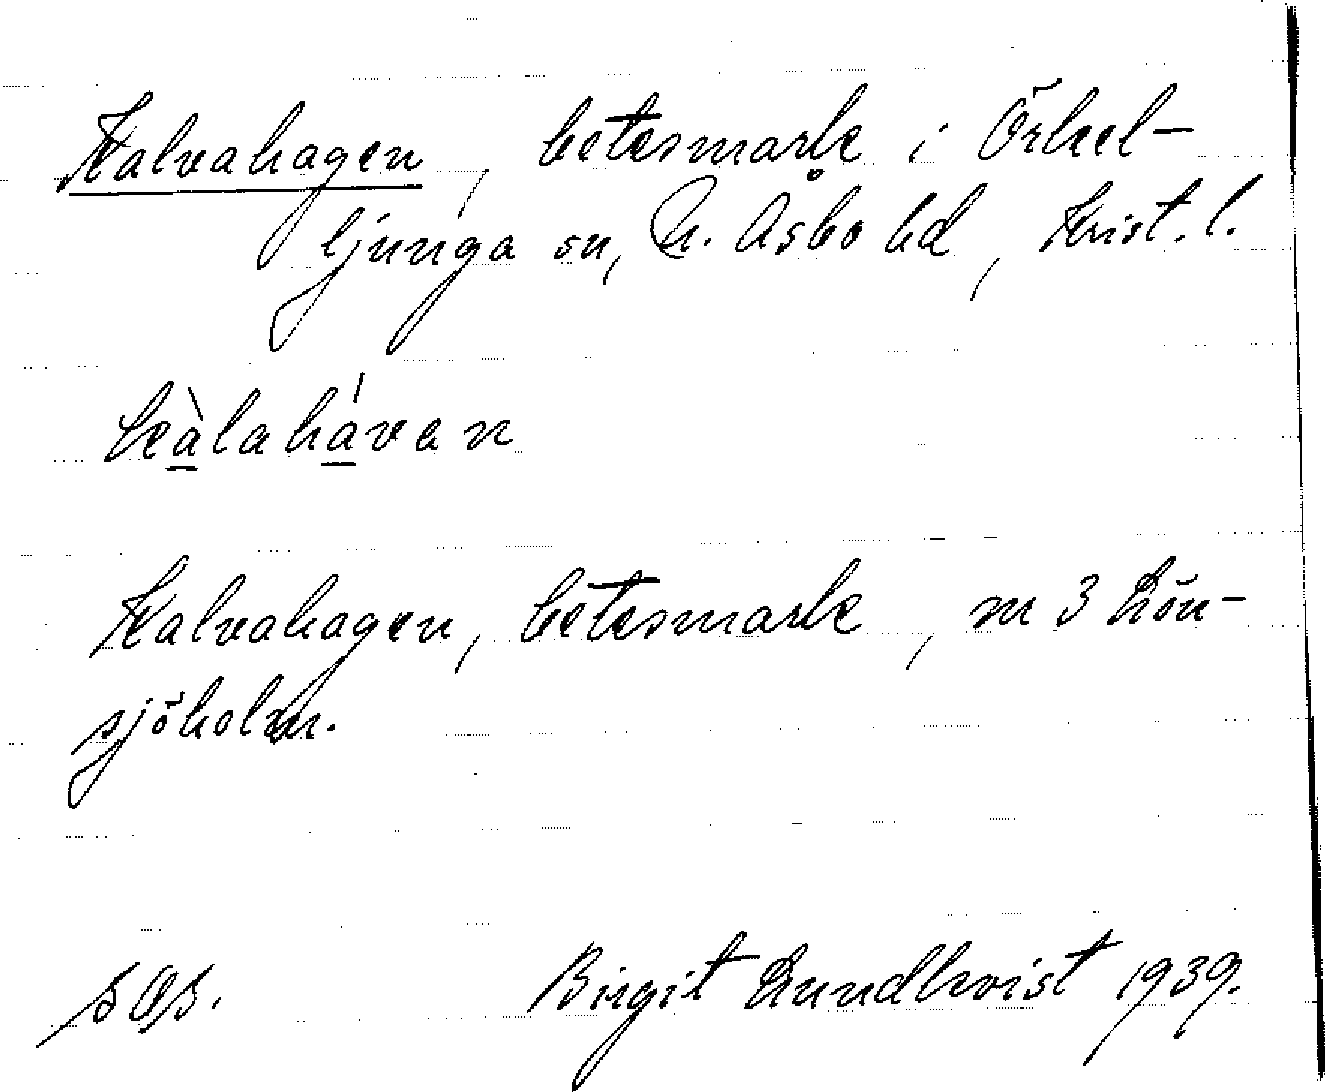 Kalvahagen, betesmark i Örkel-
ljunga sn, N. Åsbo hd, Krist. l.
kàlahávan
Kalvahagen, betesmark, m 3 Lön-
sjöholm.
Birgit Lundkvist 1939.